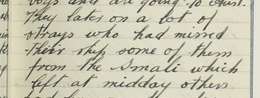 boys and are going to
They take on a lot of
strays who had missed
their ship some of them
from the Smali which
left at midday others